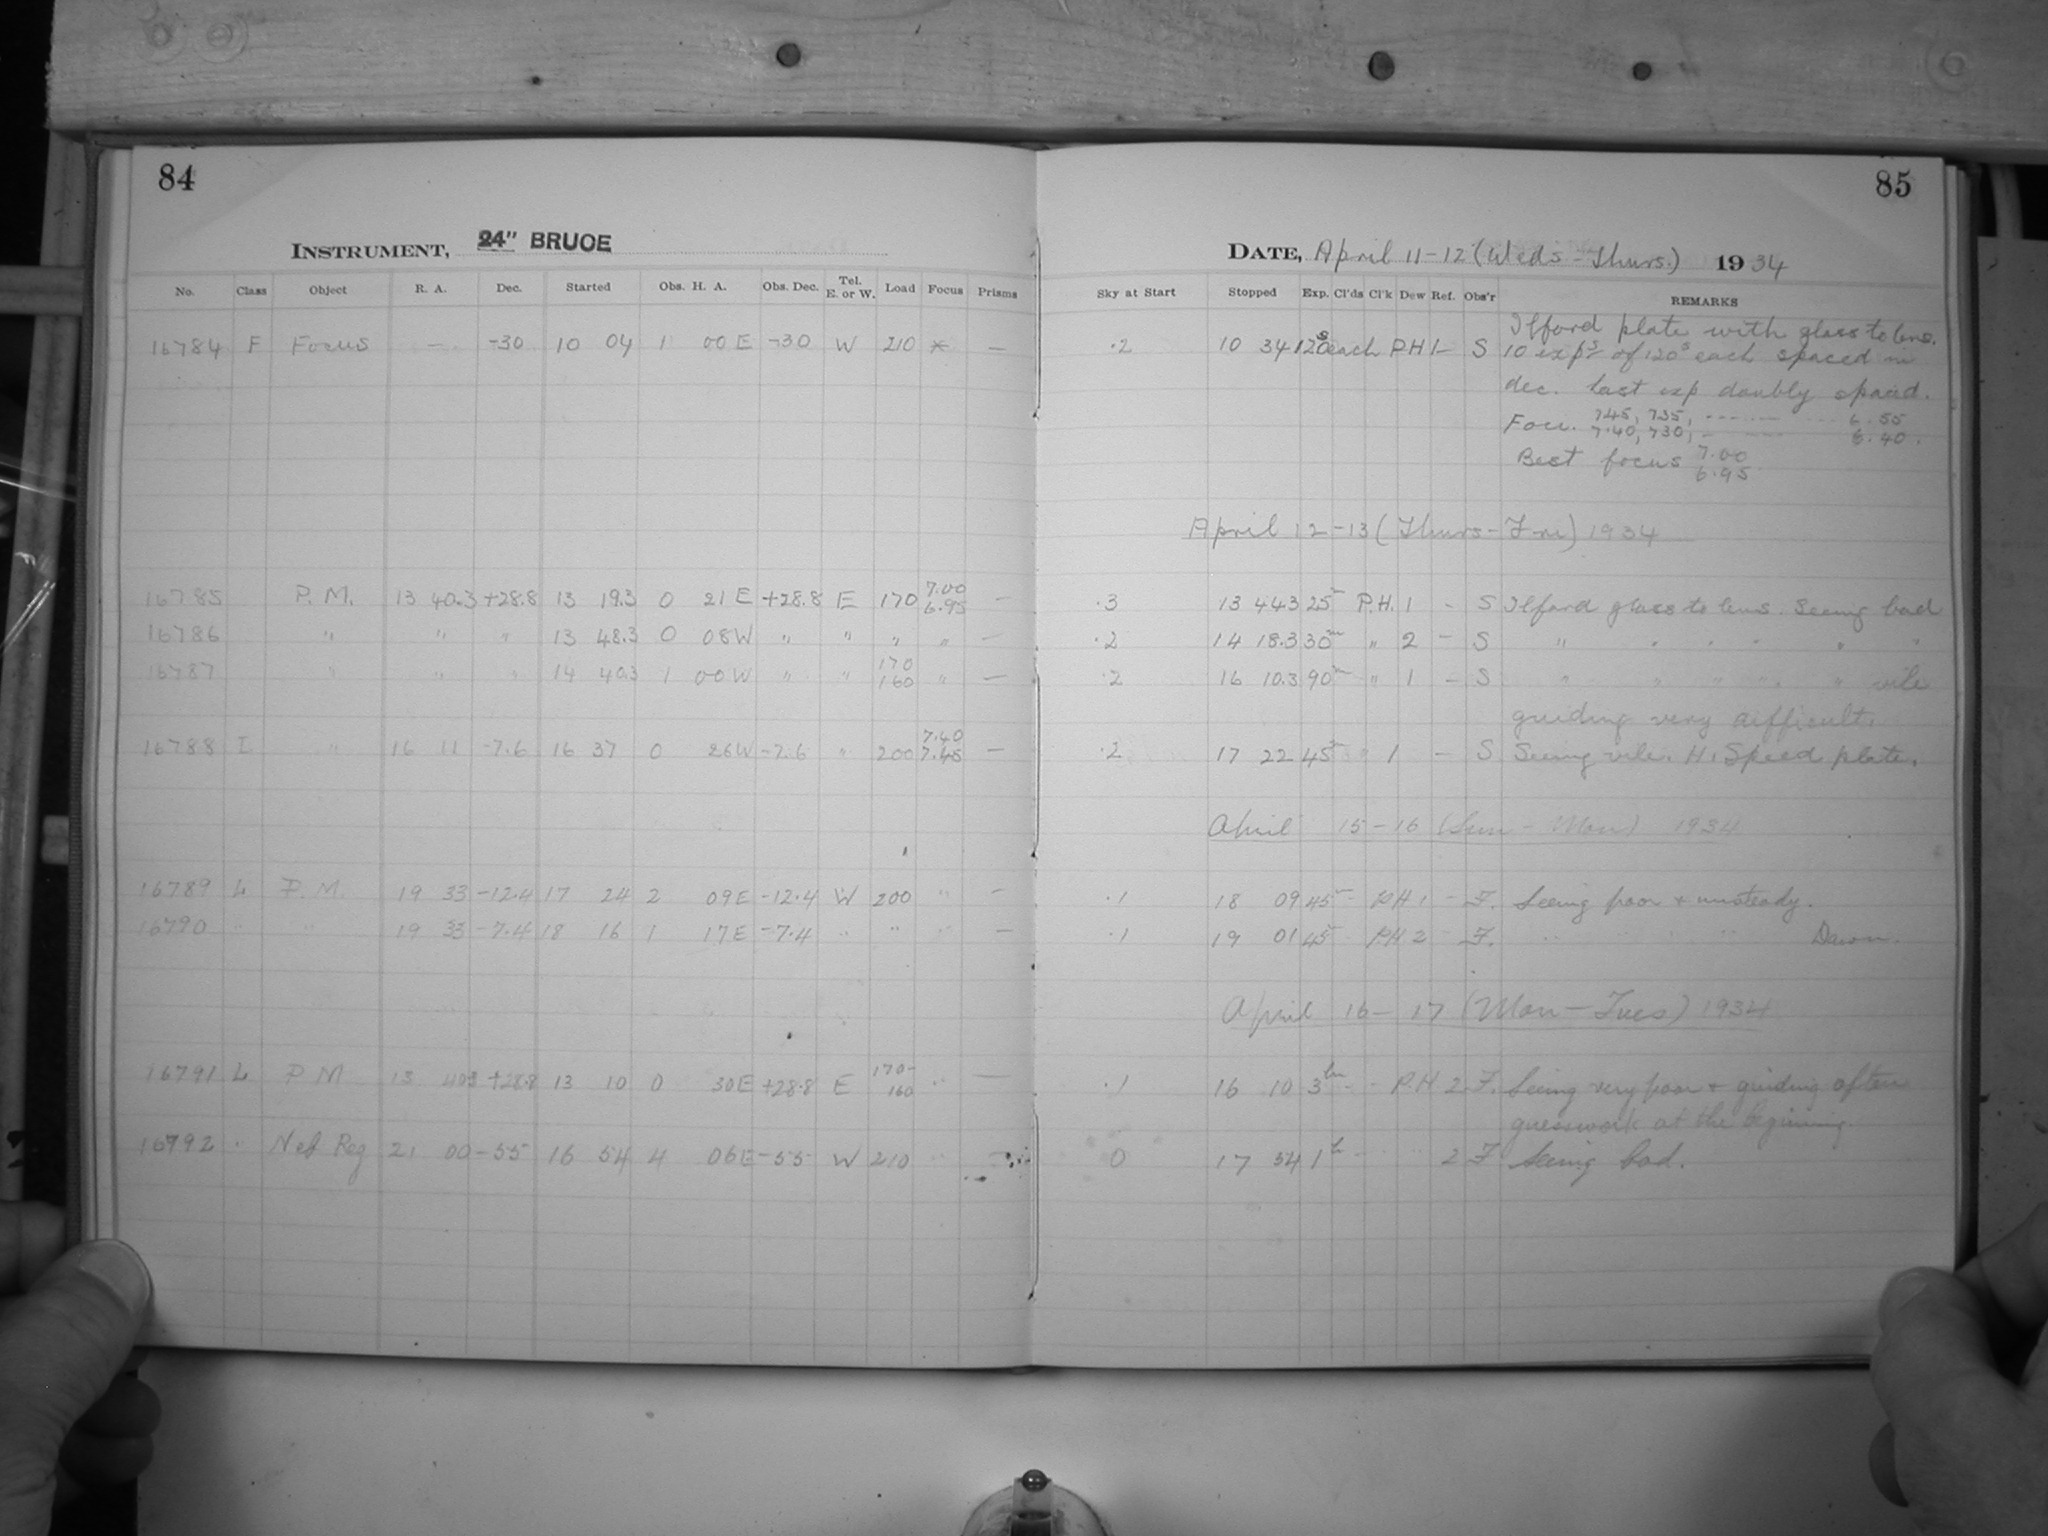 84
INSTRUMENT, 24" BRUCE
No. Class Object R. A. Dec. Started Obs. H. A. Obs. Dec. Tel. E. or W. Load Focus Prisms
16784 F Focus — -30 10 04 1 00 E -30 W 210 * —
16785 P. M. 13 40.3 +28.8 13 19.3 0 21 E +28.8 E 170 7.00 6.95 —
16786 " " " 13 48.3 0 08 W " " " " —
16787 " " " 14 40.3 1 00 W " " 170 160 " —
16788 I " 16 11 -7.6 16 37 0 26 W -7.6 " 200 7.40 7.45 —
16789 L P. M. 19 33 -12.4 17 24 2 09 E -12.4 W 200 " —
16790 " " 19 33 -7.4 18 16 1 17 E -7.4 " " " —
16791 L P M 13 403 +28.8 13 10 0 30 E +28.8 E 170- 160 " —
16792 " Neb Reg 21 00 -55 16 54 4 06 E -55 W 210 " —
85
DATE, April 11-12 (Weds - Thurs.) 1934
Sky at Start Stopped Exp. Cl'ds Cl'k Dew Ref. Obs'r REMARKS
.2 10 34 120s each P.H 1 — S Ilford plate with glass to lens.
10 exps of 120s each spaced in
dec. last exp doubly spaced.
Foci. 745, 735, ------ 6.55
7.40, 730, ------ 6.40.
Best focus 7.00
6.95
April 12-13 (Thurs - Fri) 1934
.3 13 44.3 25m P.H. 1 - S Ilford glass to lens. Seeing bad
.2 14 18.3 30m " 2 - S " " " " " "
.2 16 10.3 90m " 1 - S " " " " " vile
guiding very difficult.
.2 17 22 45m " 1 - S Seeing vile. H. Speed plate.
April 15-16 (Sun - Mon) 1934
.1 18 09 45m - P.H 1 - F. Seeing poor + unsteady.
.1 19 01 45 - P.H 2 - F. " " " " Dawn.
April 16-17 (Mon - Tues) 1934
.1 16 10 3h - - P.H 2 F. Seeing very poor + guiding often
guesswork at the begining.
0 17 54 1h - - " 2 F Seeing bad.